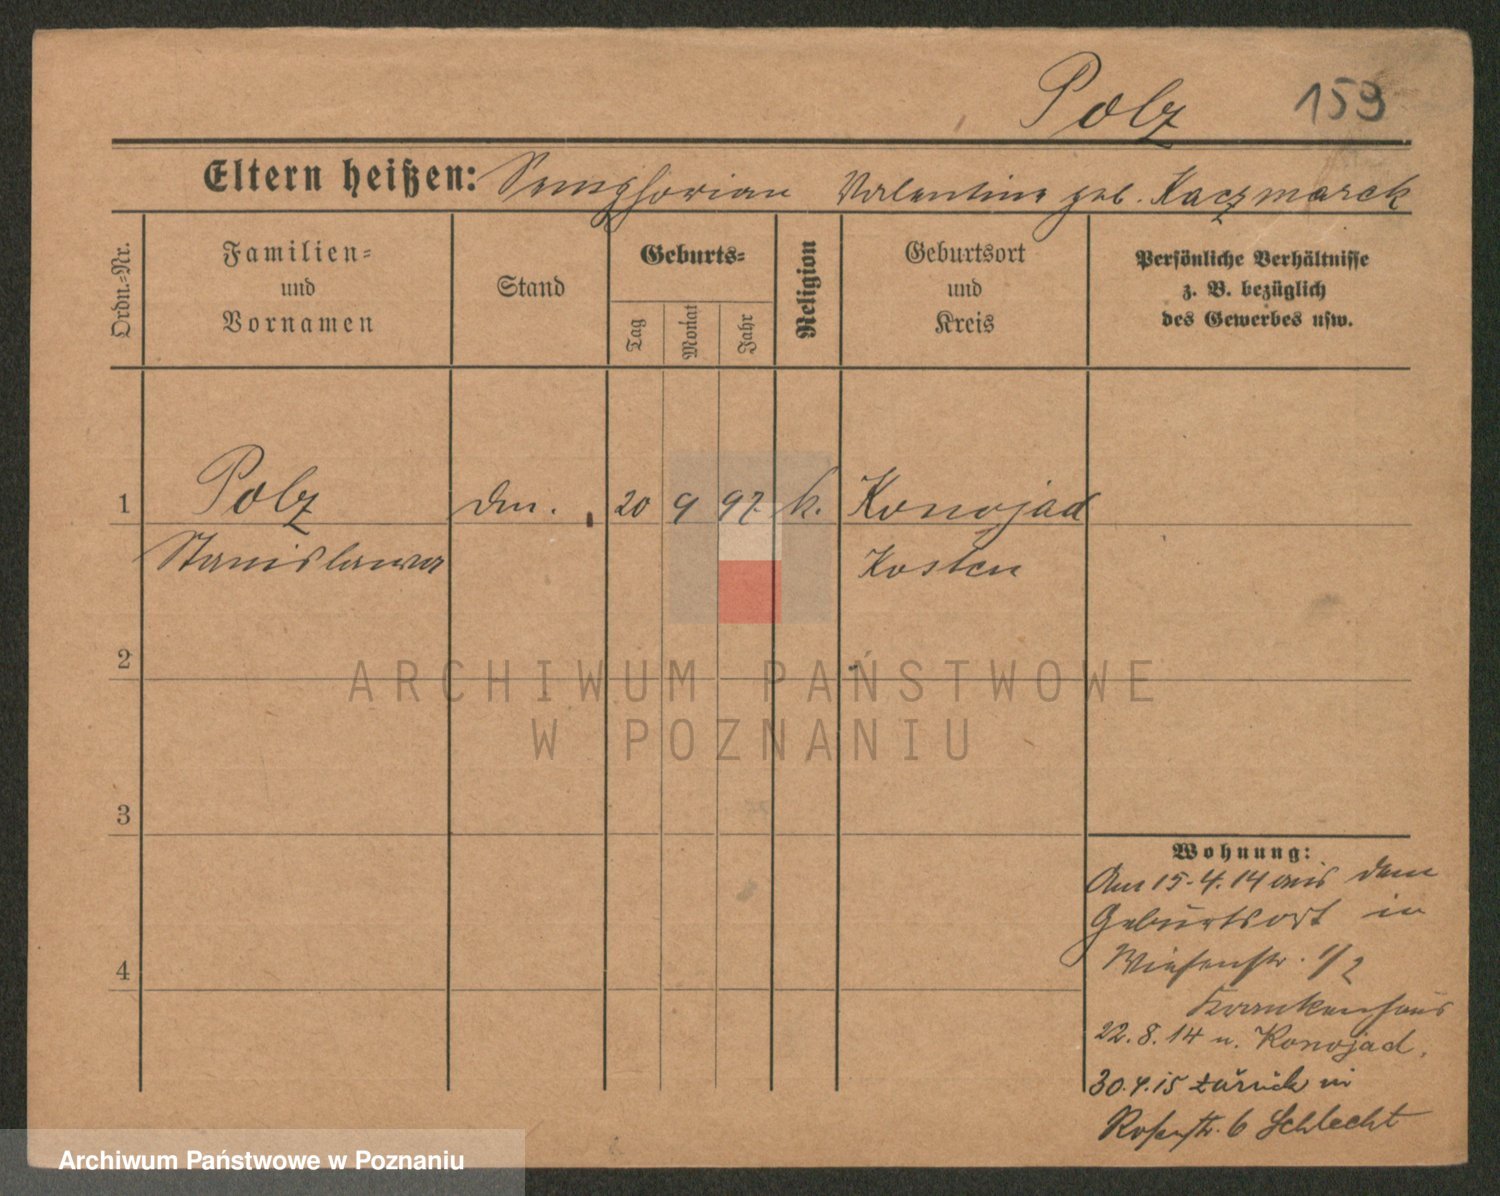 Polz 153
Eltern heißen: Symphorian Valentine geb. Kaczmarek
Ordn.-Nr.
Familien-
und
Vornamen
Stand
Geburts-
Tag
Monat
Jahr
Religion
Geburtsort
und
Kreis
Persönliche Verhältnisse
z. B. bezüglich
des Gewerbes usw.
1 Polz 20 9 97. k. Konojad
Stanislawa Kosten
2
3
4
Wohnung:
Am 15.4.14 aus dem
Geburtsort in
Wiesenstr. 1/2
Krankenhaus
22.8.14 n. Konojad.
30.4.15 zurück in
Rosenstr. 6 Schlecht
ARCHIWUM PAŃSTWOWE
W POZNANIU
Archiwum Państwowe w Poznaniu